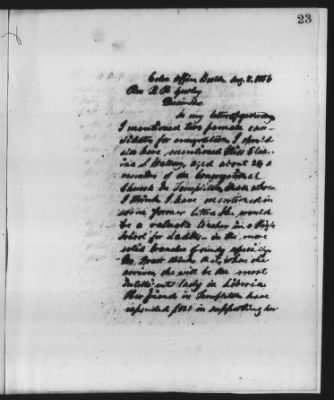 23
Colon Office Boston Aug. 8, 1856
Rev R. R. Gurley
Dear Sir
In my letter of yesterday
I mentioned two female can-
didates for emigration. I should
also have mentioned Miss
L. aged about 24 a
member of the Congregational
Church in Templeton, Mass whom
I think I have mentioned in
some former letter. She would
be a valuable teacher in a High
School for Ladies - in the more
solid branches of study especially.
Mr. thinks that, when she
arrives she will be the most
intelligent lady in Liberia
Her friends in Templeton have
expended in supporting her